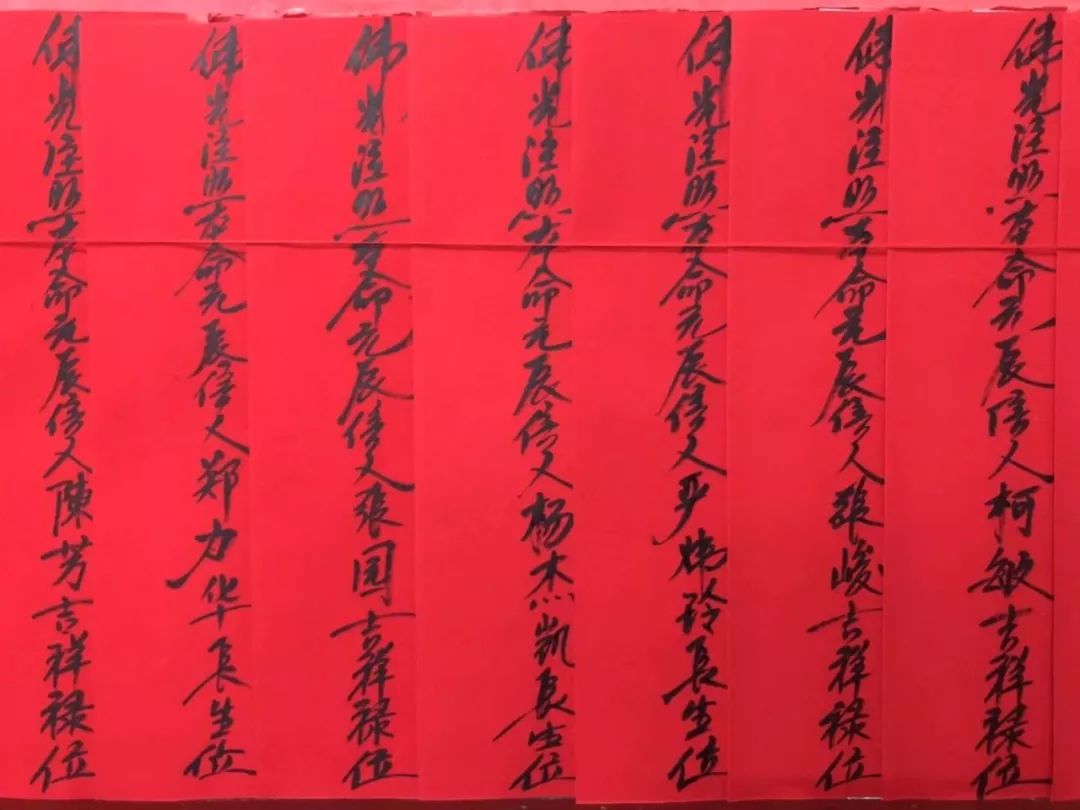 佛光注照本命元辰信人柯敏吉祥禄位
佛光注照本命元辰信人張峻吉祥禄位
佛光注照本命元辰信人严炜玲長生位
佛光注照本命元辰信人杨杰凯長生位
佛光注照本命元辰信人張园吉祥禄位
佛光注照本命元辰信人郑力华長生位
佛光注照本命元辰信人陳芳吉祥禄位